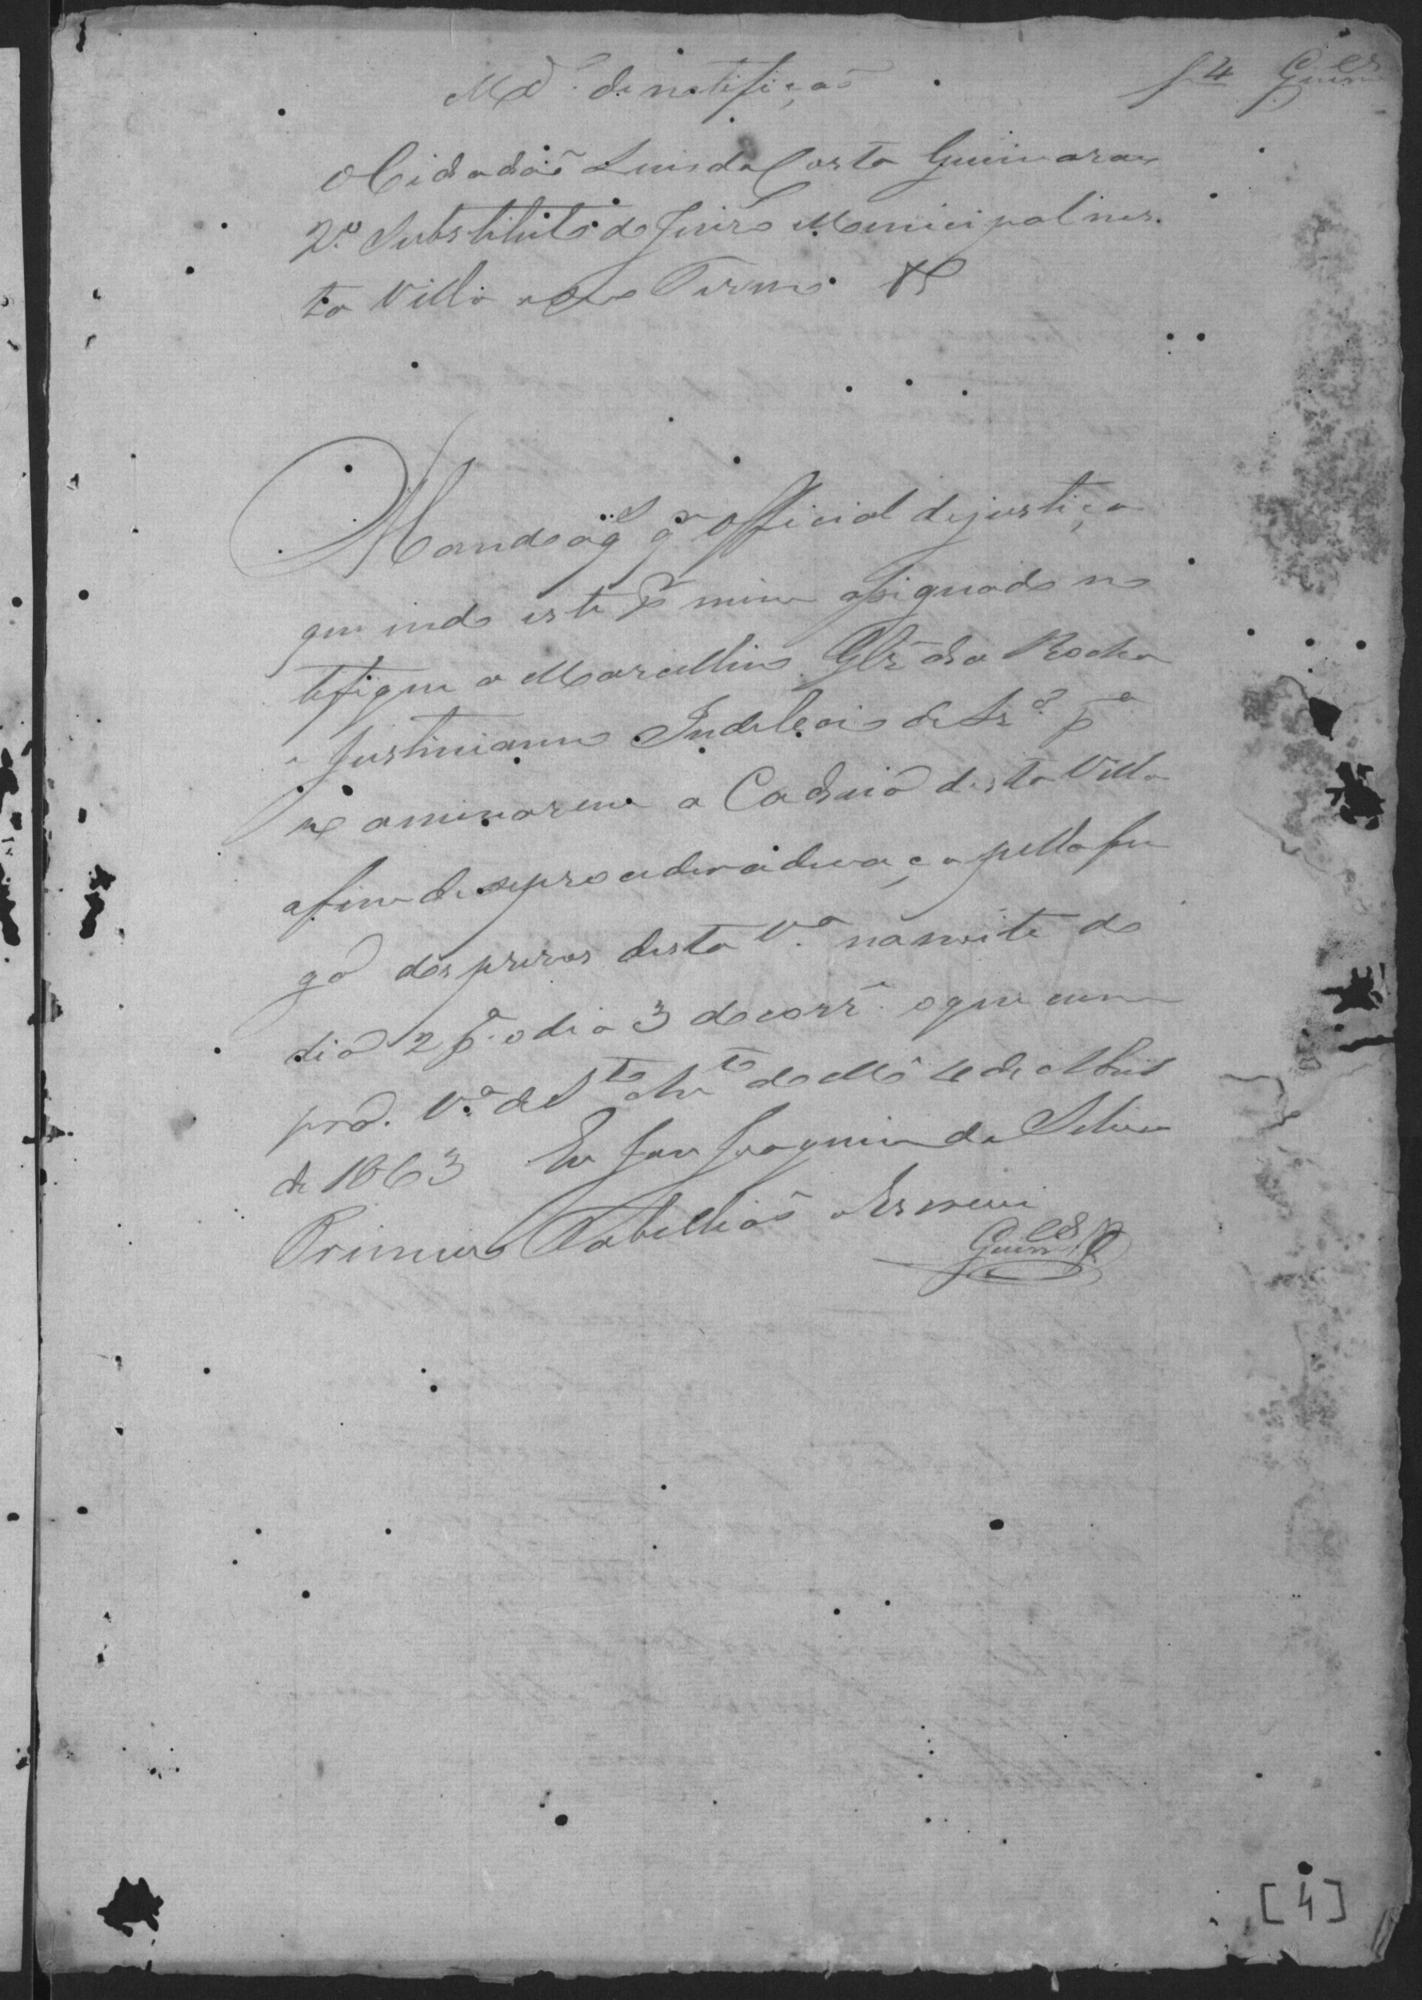 f 4 Guim.es
Md.o de notificação
O Cidadão Luis da Costa Guimaraes
2.o Substituto do Juizo Municipal nes-
ta Villa e seu Termo &
Mando a q.l q.r Official de justiça
que indo este p.r mim assignado no
tifique a Marcellino Glz' da Rocha
e Justinianno de Sz.a p.a
examinarem a Cadeia desta Villa
afim de se proceder a devaça pella fu
ga dos prezos desta V.a na noite do
dia 2 p.a o dia 3 do corr.e o que cum
pra. V.a de S.to An.to do M.e 4 de Abril
de 1863 Eu Joaquim da Silva
Primeiro Tabellião o Escrevi
Guim.es
[4]